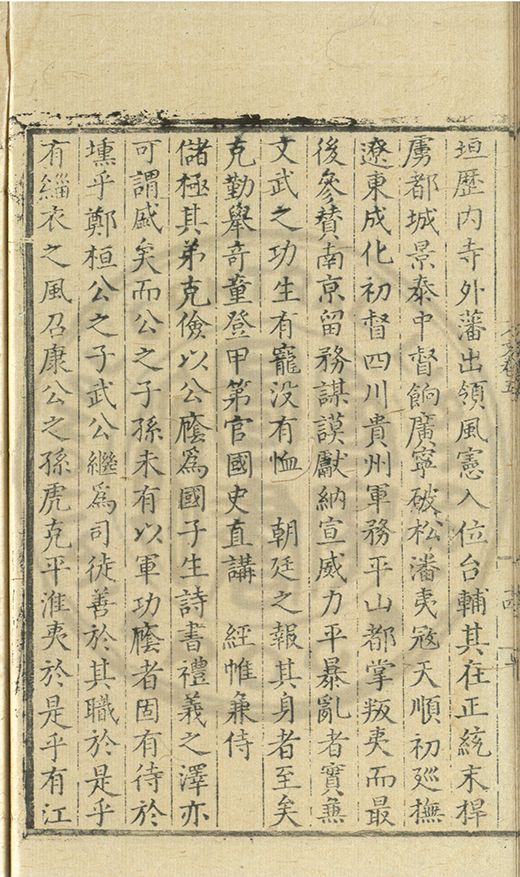 垣歷内寺外藩出領風憲入位台輔其在正統末桿
虜都城景泰中督餉廣寧破松潘夷寇天順初廵撫
遼東成化初督四川貴州軍務平山都掌叛夷而最
後叅賛南京留務謀謨獻納宣威力平暴亂者實兼
文武之功生有寵没有恤　朝廷之報其身者至矣
克勤舉竒童登甲第官國史直講　經帷兼侍
儲極其弟克儉以公廕為國子生詩書禮義之澤亦
可謂盛矣而公之子孫未有以軍功廕者固有待於
壎乎鄭桓公之子武公繼為司徒善於其職於是乎
有緇衣之風召康公之孫虎克平淮夷於是乎有江